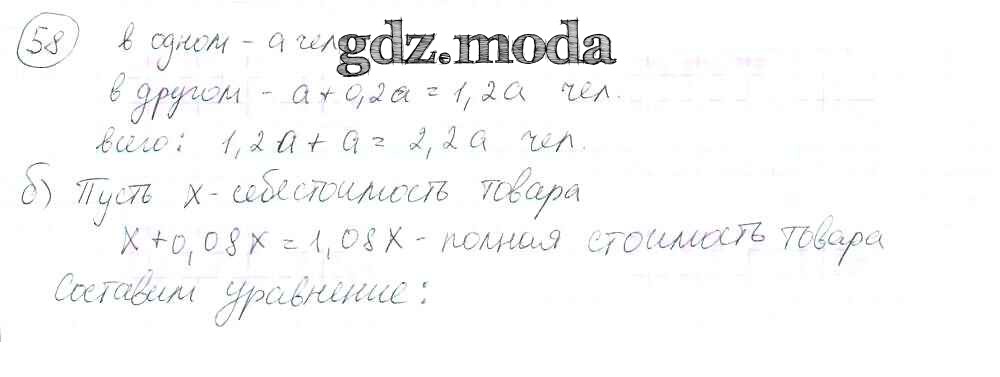 58 в одном - а чел gdz.moda
в другом - а + 0,2а = 1,2а чел.
всего: 1,2а + а = 2,2а чел.
б) Пусть х - себестоимость товара
х + 0,08х = 1,08х - полная стоимость товара
Составим уравнение: